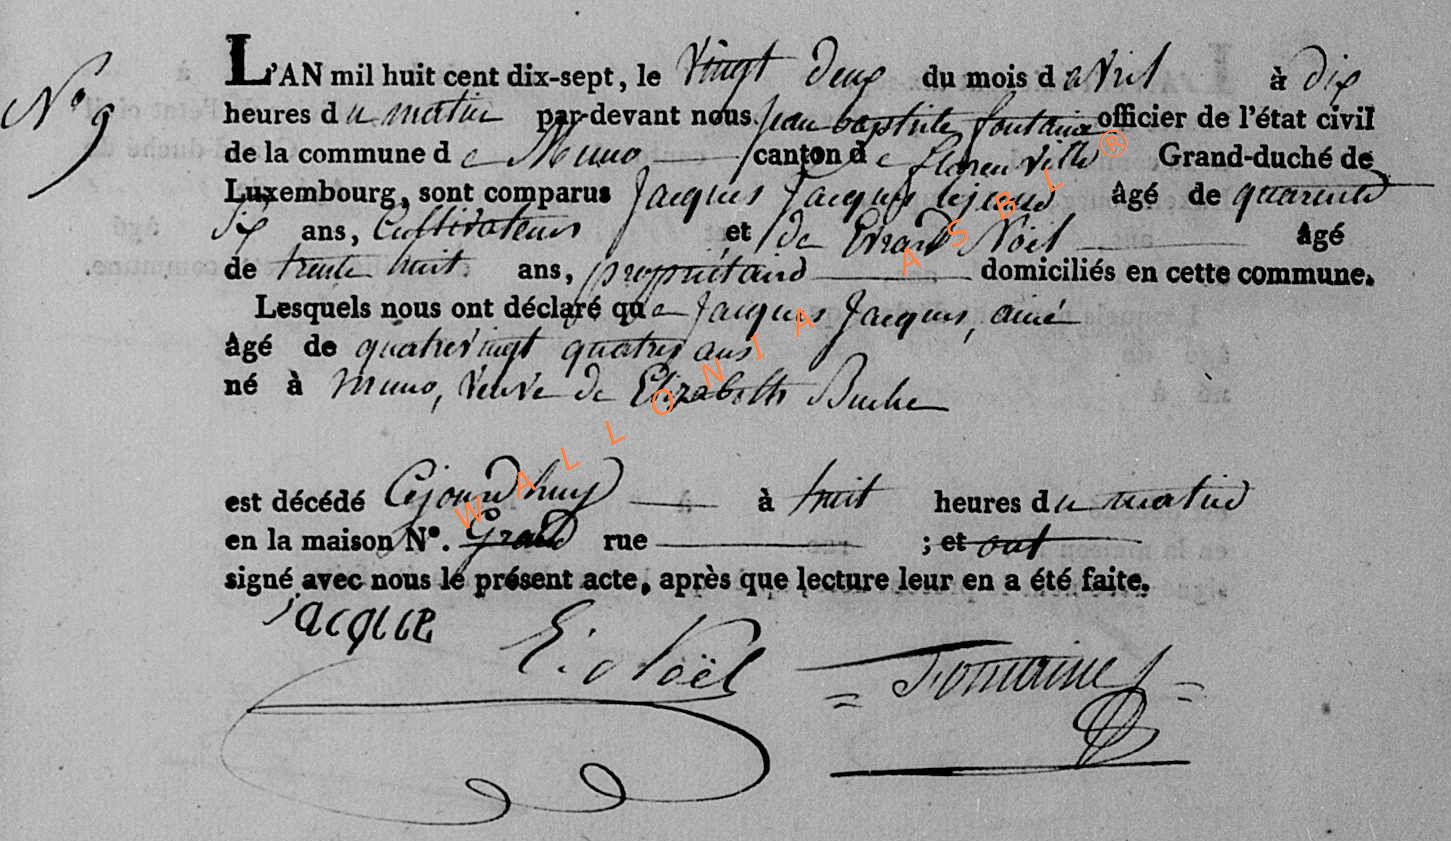 N° 9
L'AN mil huit cent dix-sept, le Vingt deux du mois d avril à dix
heures d u matin par-devant nous jean baptiste fontaine officier de l'état civil
de la commune d e Muno canton d e florenville Grand-duché de
Luxembourg, sont comparus Jacques Jacques lejeune âgé de quarante
Six ans, Cultivateur et de Erard Noël âgé
de trente huit ans, propriétaire domiciliés en cette commune.
Lesquels nous ont déclaré qu e Jacques Jacques, ainé
âgé de quatrevingt quatre ans
né à Muno, Veuve de Elizabeth Buche
est décédé Cejourdhuy à huit heures d u matin
en la maison N°. Grand rue ; et ont
signé avec nous le présent acte, après que lecture leur en a été faite.
jacque E. Noël Fontaine
WALLONIA ASBL ®